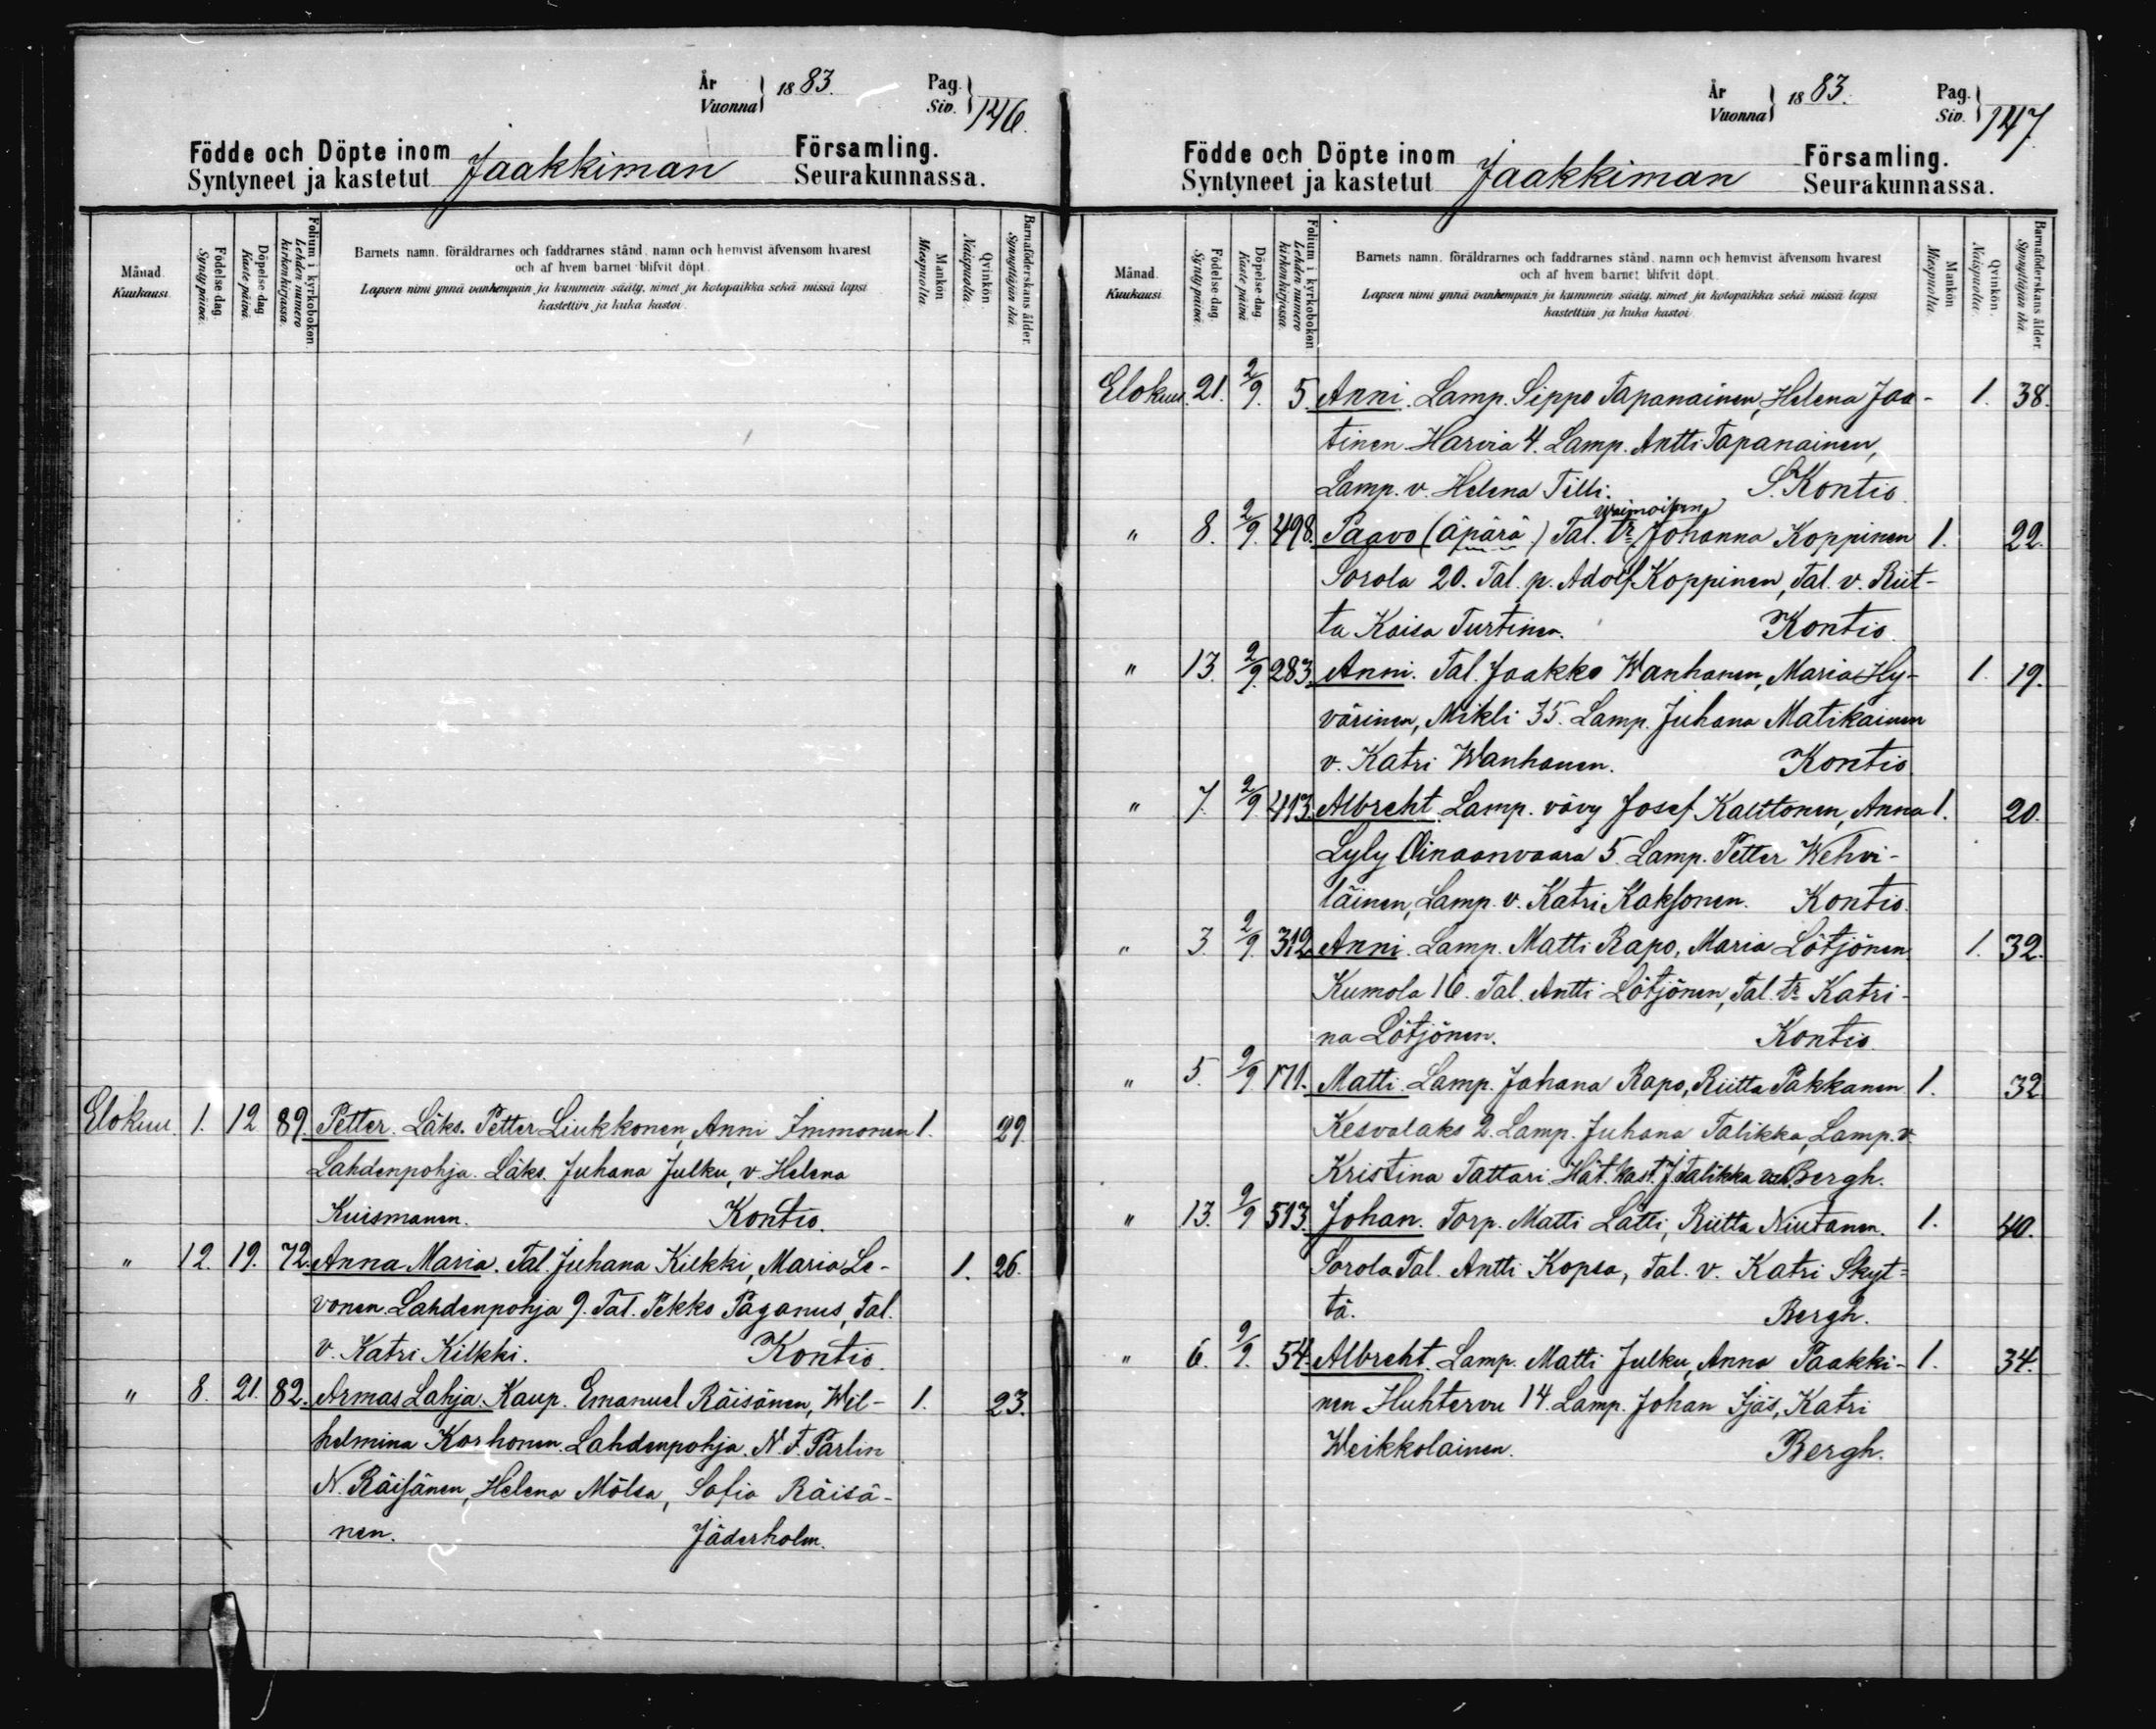 År
Vuonna 1883. Pag.
Siv. 146.
Födde och Döpte inom Jaakkiman Församling.
Syntyneet ja kastetut Seurakunnassa.
Månad.
Kuukausi.
Födelse-dag.
Synty-päivä.
Döpelse-dag.
Kaste-päivä.
Folium i kyrkoboken
Lehden numero
kirkonkirjassa.
Barnets namn, föräldrarnes och faddrarnes stånd, namn och hemvist äfvensom hvarest
och af hvem barnet blifvit döpt.
Lapsen nimi ynnä vanhempain ja kummein sääty, nimet ja kotopaikka sekä missä lapsi
kastettiin ja kuka kastoi.
Mankön.
Miespuolta.
Qvinkön.
Naispuolta.
Barnaföderskans ålder.
Synnyttäjän ikä.
Elokuu. 1. 12 89. Petter. Läks. Petter Liukkonen, Anni Immonen 1. 29.
Lahdenpohja. Läks. Juhana Julku, v. Helena
Kuismanen. Kontio.
" 12. 19. 72. Anna Maria. Tal. Juhana Kilkki, Maria Le- 1. 26.
vonen. Lahdenpohja 9. Tal. Pekko Paganus, Tal.
v. Katri Kilkki. Kontio.
" 8. 21. 82. Armas Lahja. Kaup. Emanuel Räisänen, Wil- 1. 23.
helmina Korhonen. Lahdenpohja. N. F. Parlin
N. Räisänen, Helena Mölsa, Sofia Räisä-
nen. Jäderholm.
År
Vuonna 1883. Pag.
Siv. 147
Födde och Döpte inom Jaakkiman Församling.
Syntyneet ja kastetut Seurakunnassa.
Månad.
Kuukausi.
Födelse-dag.
Synty-päivä.
Döpelse-dag.
Kaste-päivä.
Folium i kyrkoboken
Lehden numero
kirkonkirjassa.
Barnets namn, föräldrarnes och faddrarnes stånd, namn och hemvist äfvensom hvarest
och af hvem barnet blifvit döpt.
Lapsen nimi ynnä vanhempain ja kummein sääty, nimet ja kotopaikka sekä missä lapsi
kastettiin ja kuka kastoi.
Mankön
Miespuolta.
Qvinkön.
Naispuolta.
Barnaföderskans ålder.
Synnyttäjän ikä.
Elokuu. 21. 2/9. 5. Anni. Lamp. Sippo Tapanainen, Helena Jaa- 1. 38.
tinen Harvia 4. Lamp. Antti Tapanainen,
Lamp. v. Helena Tilli. S. Kontio.
" 8. 2/9. 498. Paavo (äpärä) Tal. tr Johanna Koppinen 1. 22.
Sorola 20. Tal. p. Adolf Koppinen, Tal. v. Riit-
ta Kaisa Turtinen. Kontio.
" 13. 2/9. 283. Anni. Tal. Jaakko Wanhanen, Maria Hy- 1. 19.
värinen, Mikli 35. Lamp. Juhana Matikainen
v. Katri Wanhanen. Kontio
" 7. 2/9. 413. Albreht. Lamp. vävy Josef Kalttonen, Anna 1. 20.
Lyly Oinaanvaara 5. Lamp. Petter Wehvi-
läinen, Lamp. v. Katri Kaksonen. Kontio.
" 3. 2/9. 312. Anni. Lamp. Matti Rapo, Maria Lötjönen 1. 32.
Kumola 16. Tal. Antti Lötjönen, Tal. tr Katri-
na Lötjönen. Kontio.
" 5. 9/9. 171. Matti. Lamp. Johana Rapo, Riitta Pakkanen 1. 32
Kesvalaks 2. Lamp. Juhana Talikka, Lamp. v.
Kristina Tattari. Hät. kast. J. Talikka Bergh.
" 13. 9/9 513. Johan. Torp. Matti Lätti, Riitta Niutanen. 1. 40.
Sorola Tal. Antti Kopsa, Tal. v. Katri Skyt-
tä. Bergh.
" 6. 9/9. 54. Albreht. Lamp. Matti Julku, Anna Paakki- 1. 34.
nen Huhtervu 14. Lamp. Johan Ijäs, Katri
Weikkolainen. Bergh.